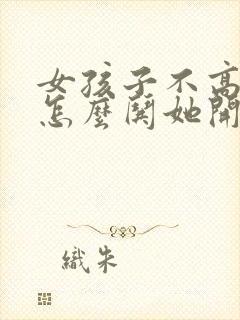 女孩子不高
怎麼鬨她開
織朱